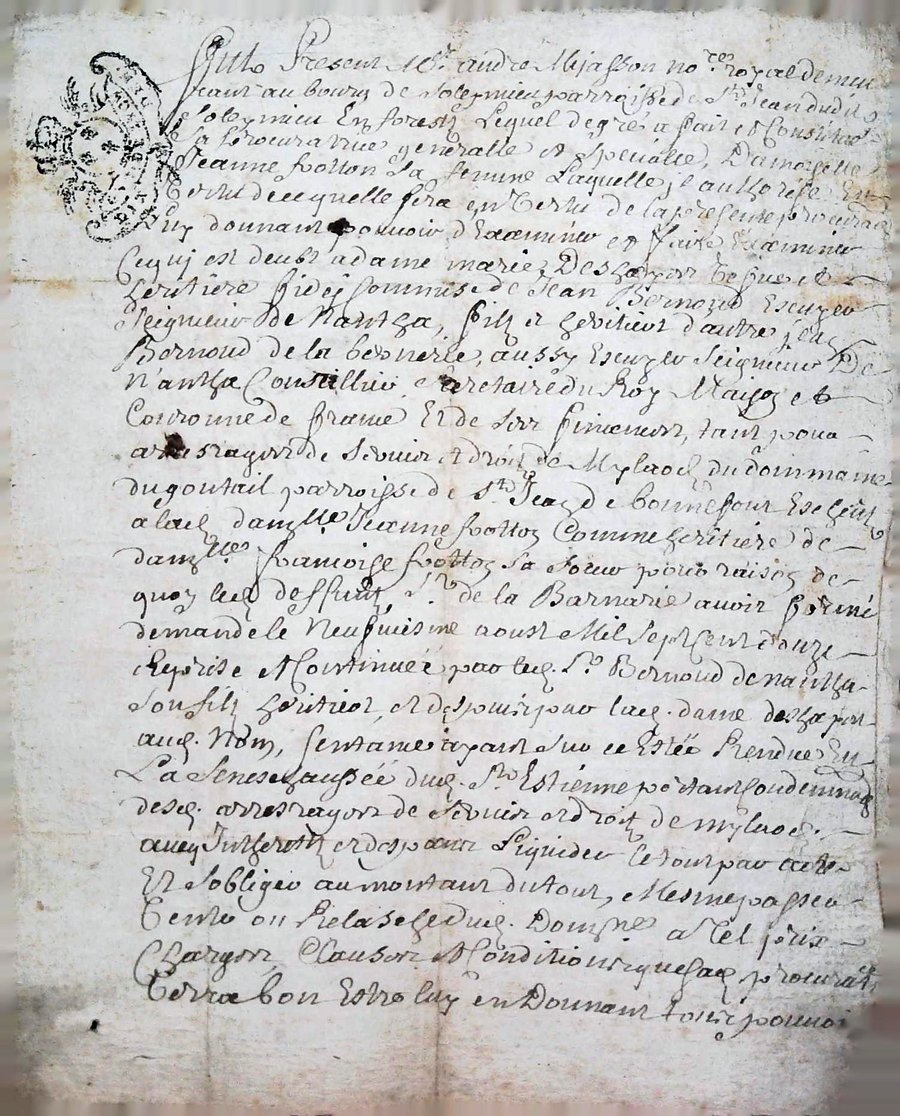 Fut Present Mr. andré Mijasson no.re royal demeu
rant au bourg de Soleymieu parroisse de St. Jean dudit
Soleymieu En forest, Lequel de gré a fait et Constitué
Sa Procuratrice generalle et speciálle, Damoizelle
Jeanne frotton Sa femme Laquelle, il authorise En
Vertu de ce quelle fera en Vertu de la presente procuraõn
Luy donnant pouvoir d'Examiner et faire Examiner
Ce qui est deubt a dame marie Deschapon Vefue et
heritiere fideicommise de Jean Bernoud Escuyer
Seigneur de Nantha, filz et heritier d'autre Jean
Bernoud de la bernerie, aussy Escuyer Seigneur De
Nantha Conseillier, Secretaire du Roy Maison et
Couronne de france Et de Ses finances, tant pour
arresrages de Servis et droit de Mylaod du dommaine
du goutail parroisse de St. Jean de bonnefont Escheus
a lad. dam.lle Jeanne frotton Comme heritiere de
dam.lle francoise frotton Sa Soeur pour raison de
quoy led. deffunt Sr. de la Barnarie avoir formé
demande le Neufuiesme aoust Mil Sept Cent douze
Reprise et Continuée par led. Sr. Bernoud de nantha
Son filz heritier, et despuis par lad. dame deschapon
aud. Nom, Sentance ayant Sur ce Estée Rendue En
La Seneschaussée dud. St. Estienne portant Condemnaõn
desd. arresrages de Servis et droit de mylaod.
avec Intherestz et despans Liquider le tout par acte
Et Sobliger au montant du tout, Mesme passer
Vente ou Relasche dud. Domaine a Tel prix
Charges, Clauses et Conditions que lad. procurat.
Verra bon Estre luy en Donnant tout pouvoi